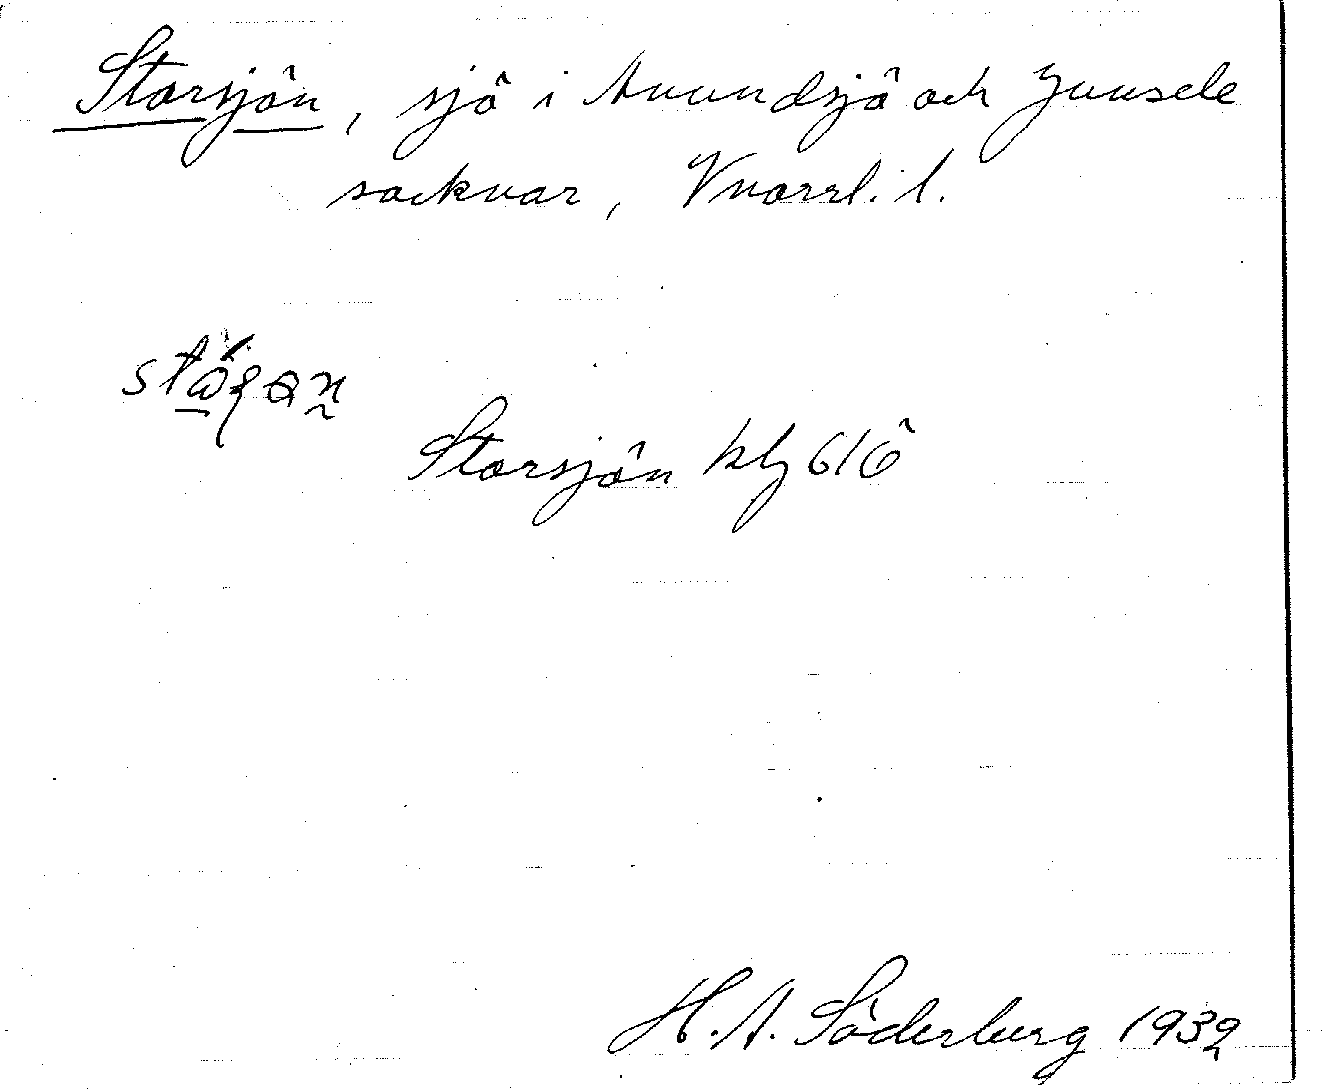 Storsjön, sjö i Anundsjö och Junsele
socknar, Vnorrl. l.
Storsjön klj 61ö
H. A. Söderberg 1932